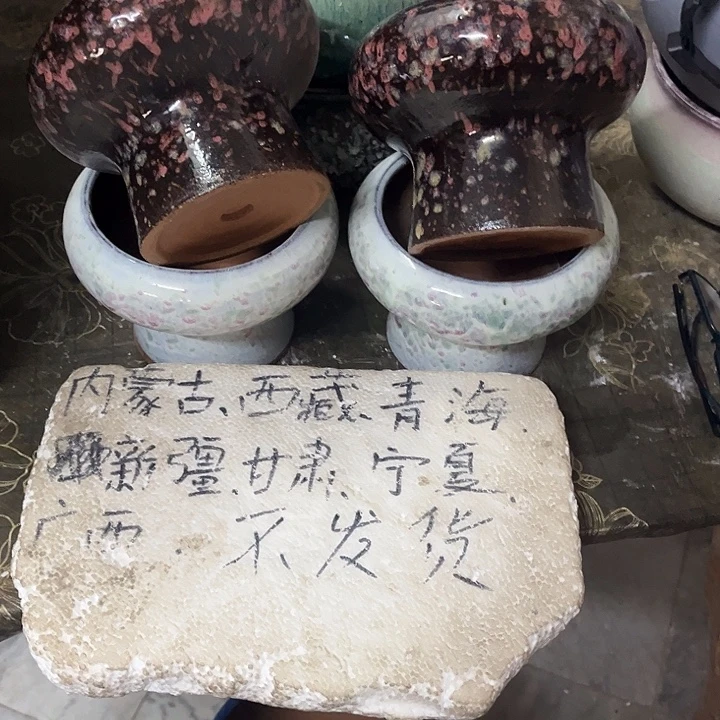 内蒙古、西藏、青海、
新彊、甘肃、宁夏、
广西、不发货